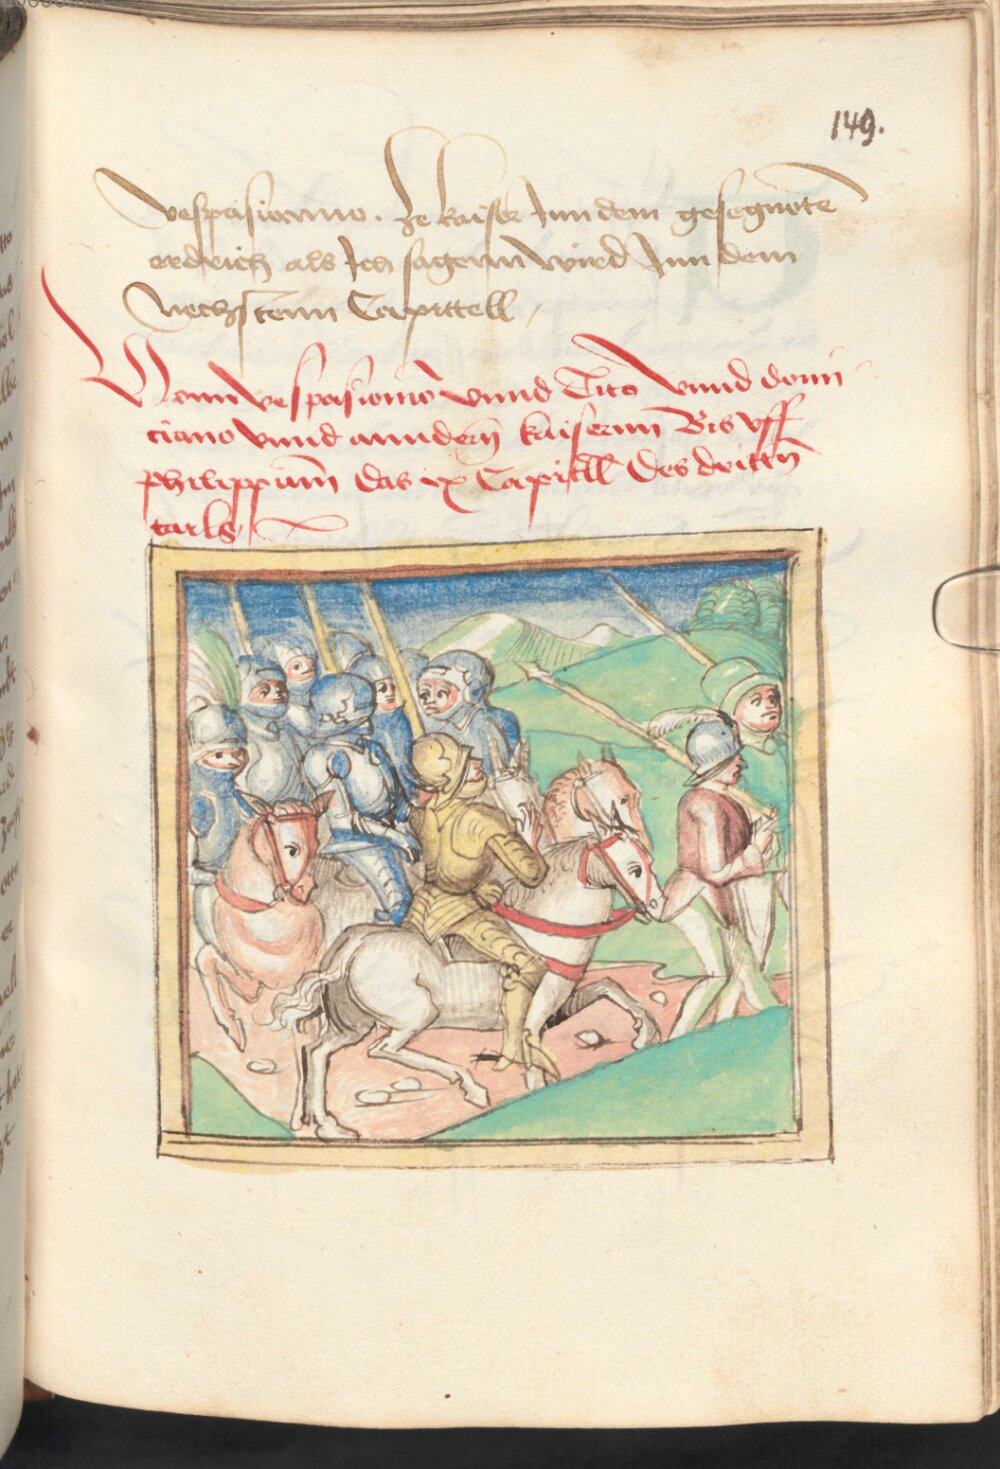 149.
vespasiano. ze kaiser Jnn dem gesegnote
erdrich als Jch sagenn wird Jnn dem
Nechstenn Cappittell
Vonn vespasiano vnnd Tito vnnd domi
ciano vnnd anndern kaisernn Bis vff
philippum das ix Capittell des dritten
tails